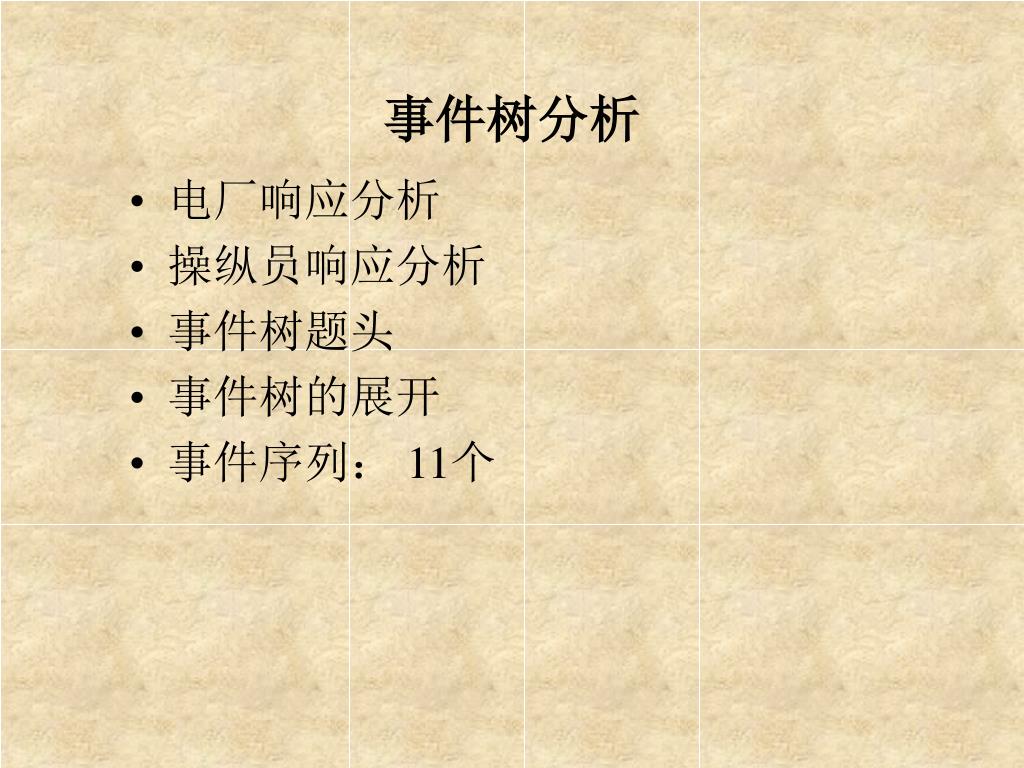 事件树分析
• 电厂响应分析
• 操纵员响应分析
• 事件树题头
• 事件树的展开
• 事件序列： 11个